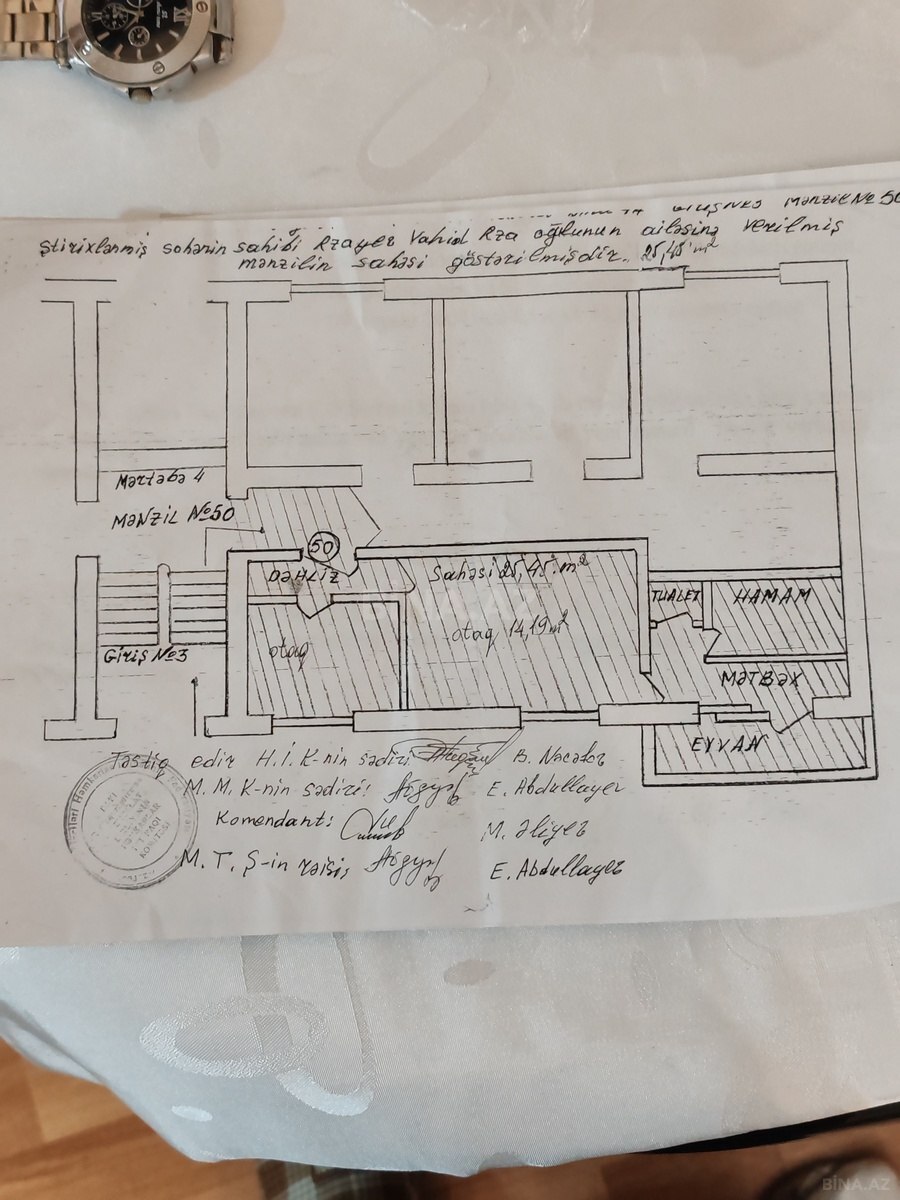 MƏNZİL №50
Ştirixlənmiş sahənin sahibi Rzayev Vahid Rza oğlunun ailəsinə verilmiş
mənzilin sahəsi göstərilmişdir. 25,45 m²
Mərtəbə 4
MƏNZİL №50
50
DƏHLİZ
Sahəsi 25,45 m²
TUALET
HAMAM
otaq
otaq 14,19 m²
Giriş №3
MƏTBƏX
EYVAN
Təstiq edir H.İ.K-nin sədiri
M.M.K-nin sədiri: E. Abdullayev
Komendant: M. Əliyev
M.T.Ş-in rəisi: E. Abdullayev
KOMİTƏSİ
BİNA.AZ